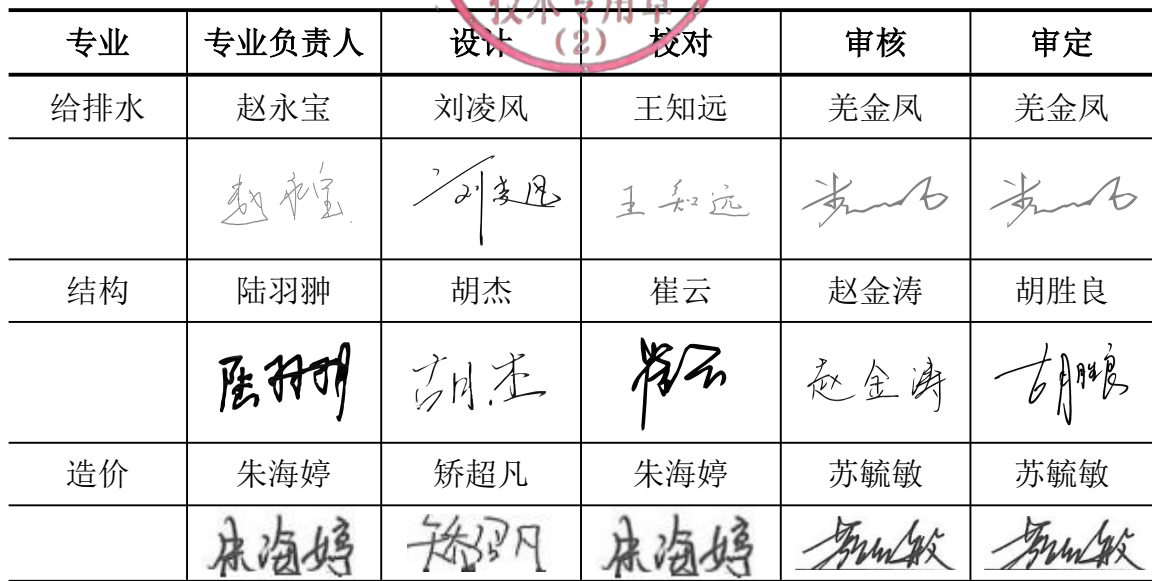 技术专用章
(2)
专业 专业负责人 设计 校对 审核 审定
给排水 赵永宝 刘凌风 王知远 羌金凤 羌金凤
赵永宝 刘凌风 王知远
结构 陆羽翀 胡杰 崔云 赵金涛 胡胜良
陆羽翀 胡杰 崔云 赵金涛 胡胜良
造价 朱海婷 矫超凡 朱海婷 苏毓敏 苏毓敏
朱海婷 矫超凡 朱海婷 苏毓敏 苏毓敏